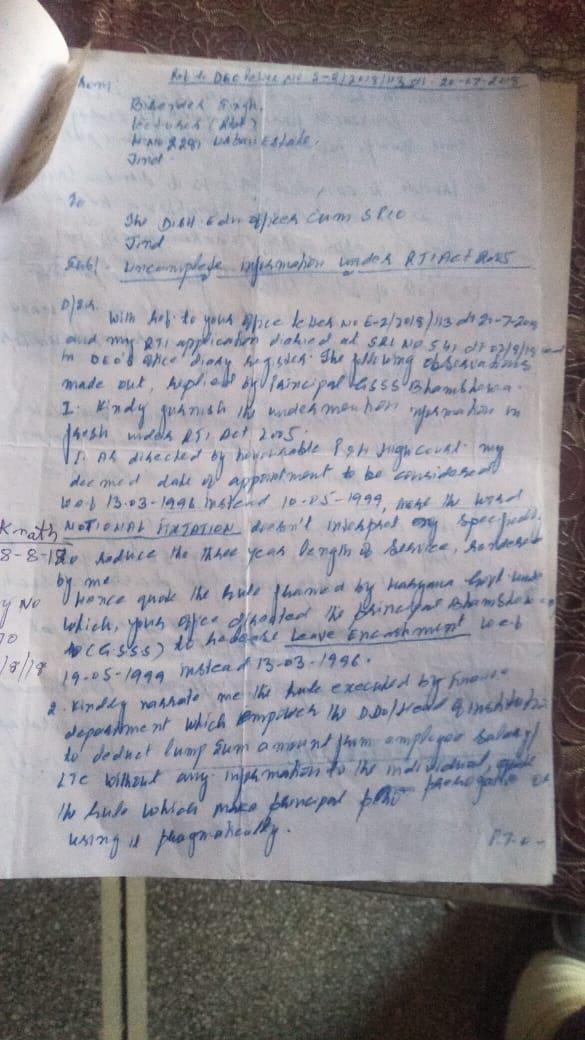 Ref to DEO Letter No E-2/2018/113 dt. 20-07-2018
From:
Birender Singh,
Lecturer (Retd)
H.No 2281 Urban Estate,
Jind.
To
The Distt Edu officer cum SPIO
Jind
Subj. Uncomplete information under RTI Act 2005
D/Sir
With Ref. to your office letter No E-2/2018/113 dt 20-7-2018
and my RTI application diaried at SRL No 541 dt 07/8/18
in DEO's office diary register. The following observations
made out, replied by Principal GSSS Bhambhewa.
I. Kindly furnish the undermention information in
fresh under RTI Act 2005.
1. As directed by honourable P&H High Court my
deemed date of appointment to be considered
w.e.f 13-03-1996 instead 10-05-1999, here the word
NOTIONAL FIXATION doesn't interpret any specifically
to reduce the three year length of service, rendered
by me
Hence quote the rule framed by Haryana Govt under
which, your office directed the principal Bhambhewa
(GSSS) to release Leave Encashment w.e.f
19-05-1999 instead 13-03-1996.
2. Kindly narrate me the rule executed by finance
department which empower the DDO/Head of institution
to deduct lump sum amount from employee salary/
LTC without any information to the individual, quote
the rule which make principal prerogative or
using it pragmatically.
P.T.O-
K nath
8-8-18
y No
70
/8/18